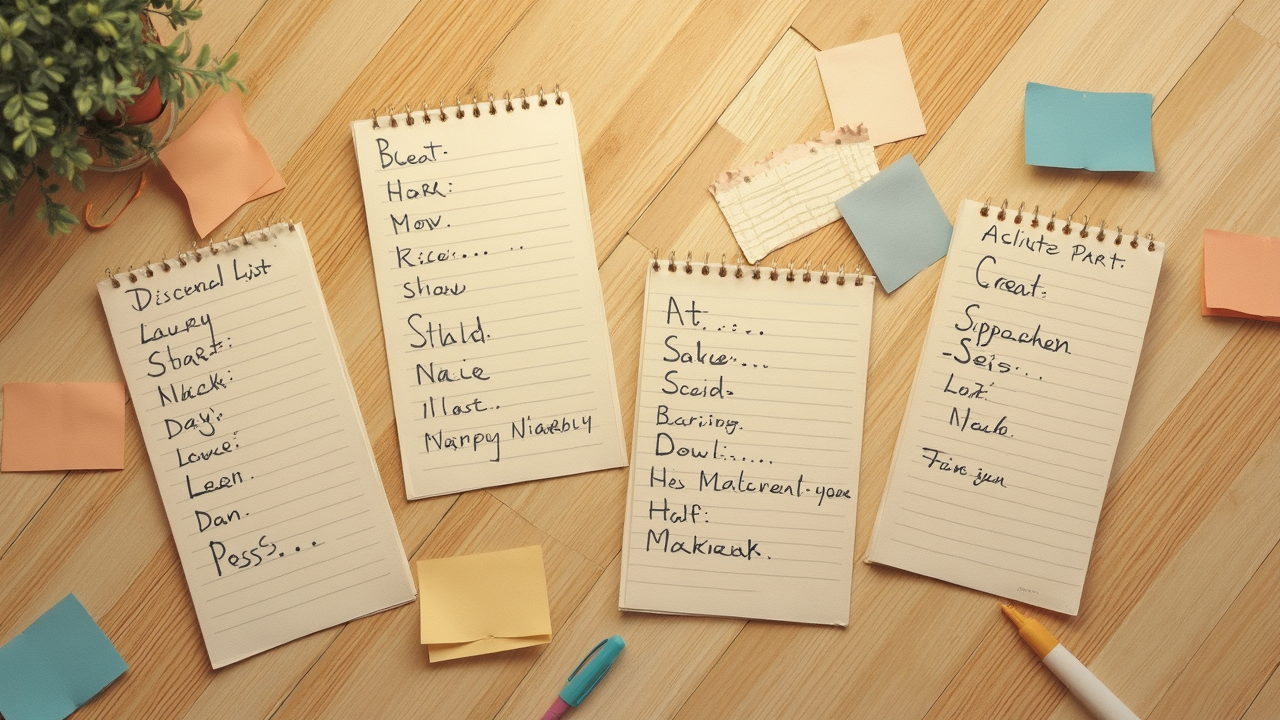 Discenal List
Laurey
Start:
Nlack:
Day:
Lowe:
Leen.
Dan.
Pess...
Bleat.
Hark:
Mow.
Rice....
Show
Sthld.
Naie
Illost..
Nanpy Niarbly
At......
Salue....
Sceid
Bariing.
Dowl......
Hes Matcrent.you
Half:
Makieak.
Acliute PART.
Creat:
Sippachen
-Seis...
Lot:
Naub.